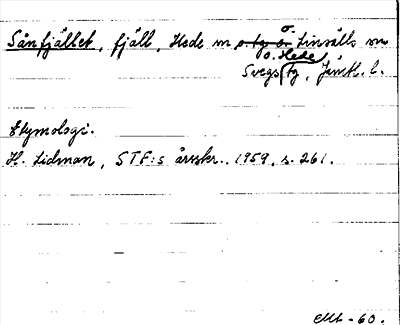 Sånfjället, fjäll, Hede sn o. tg o. Linsälls sn
o. Hede
Svegs tg, Jämtl. l.
Etymologi.
H. Lidman, STF:s årsskr. 1959, s. 261.
-60.